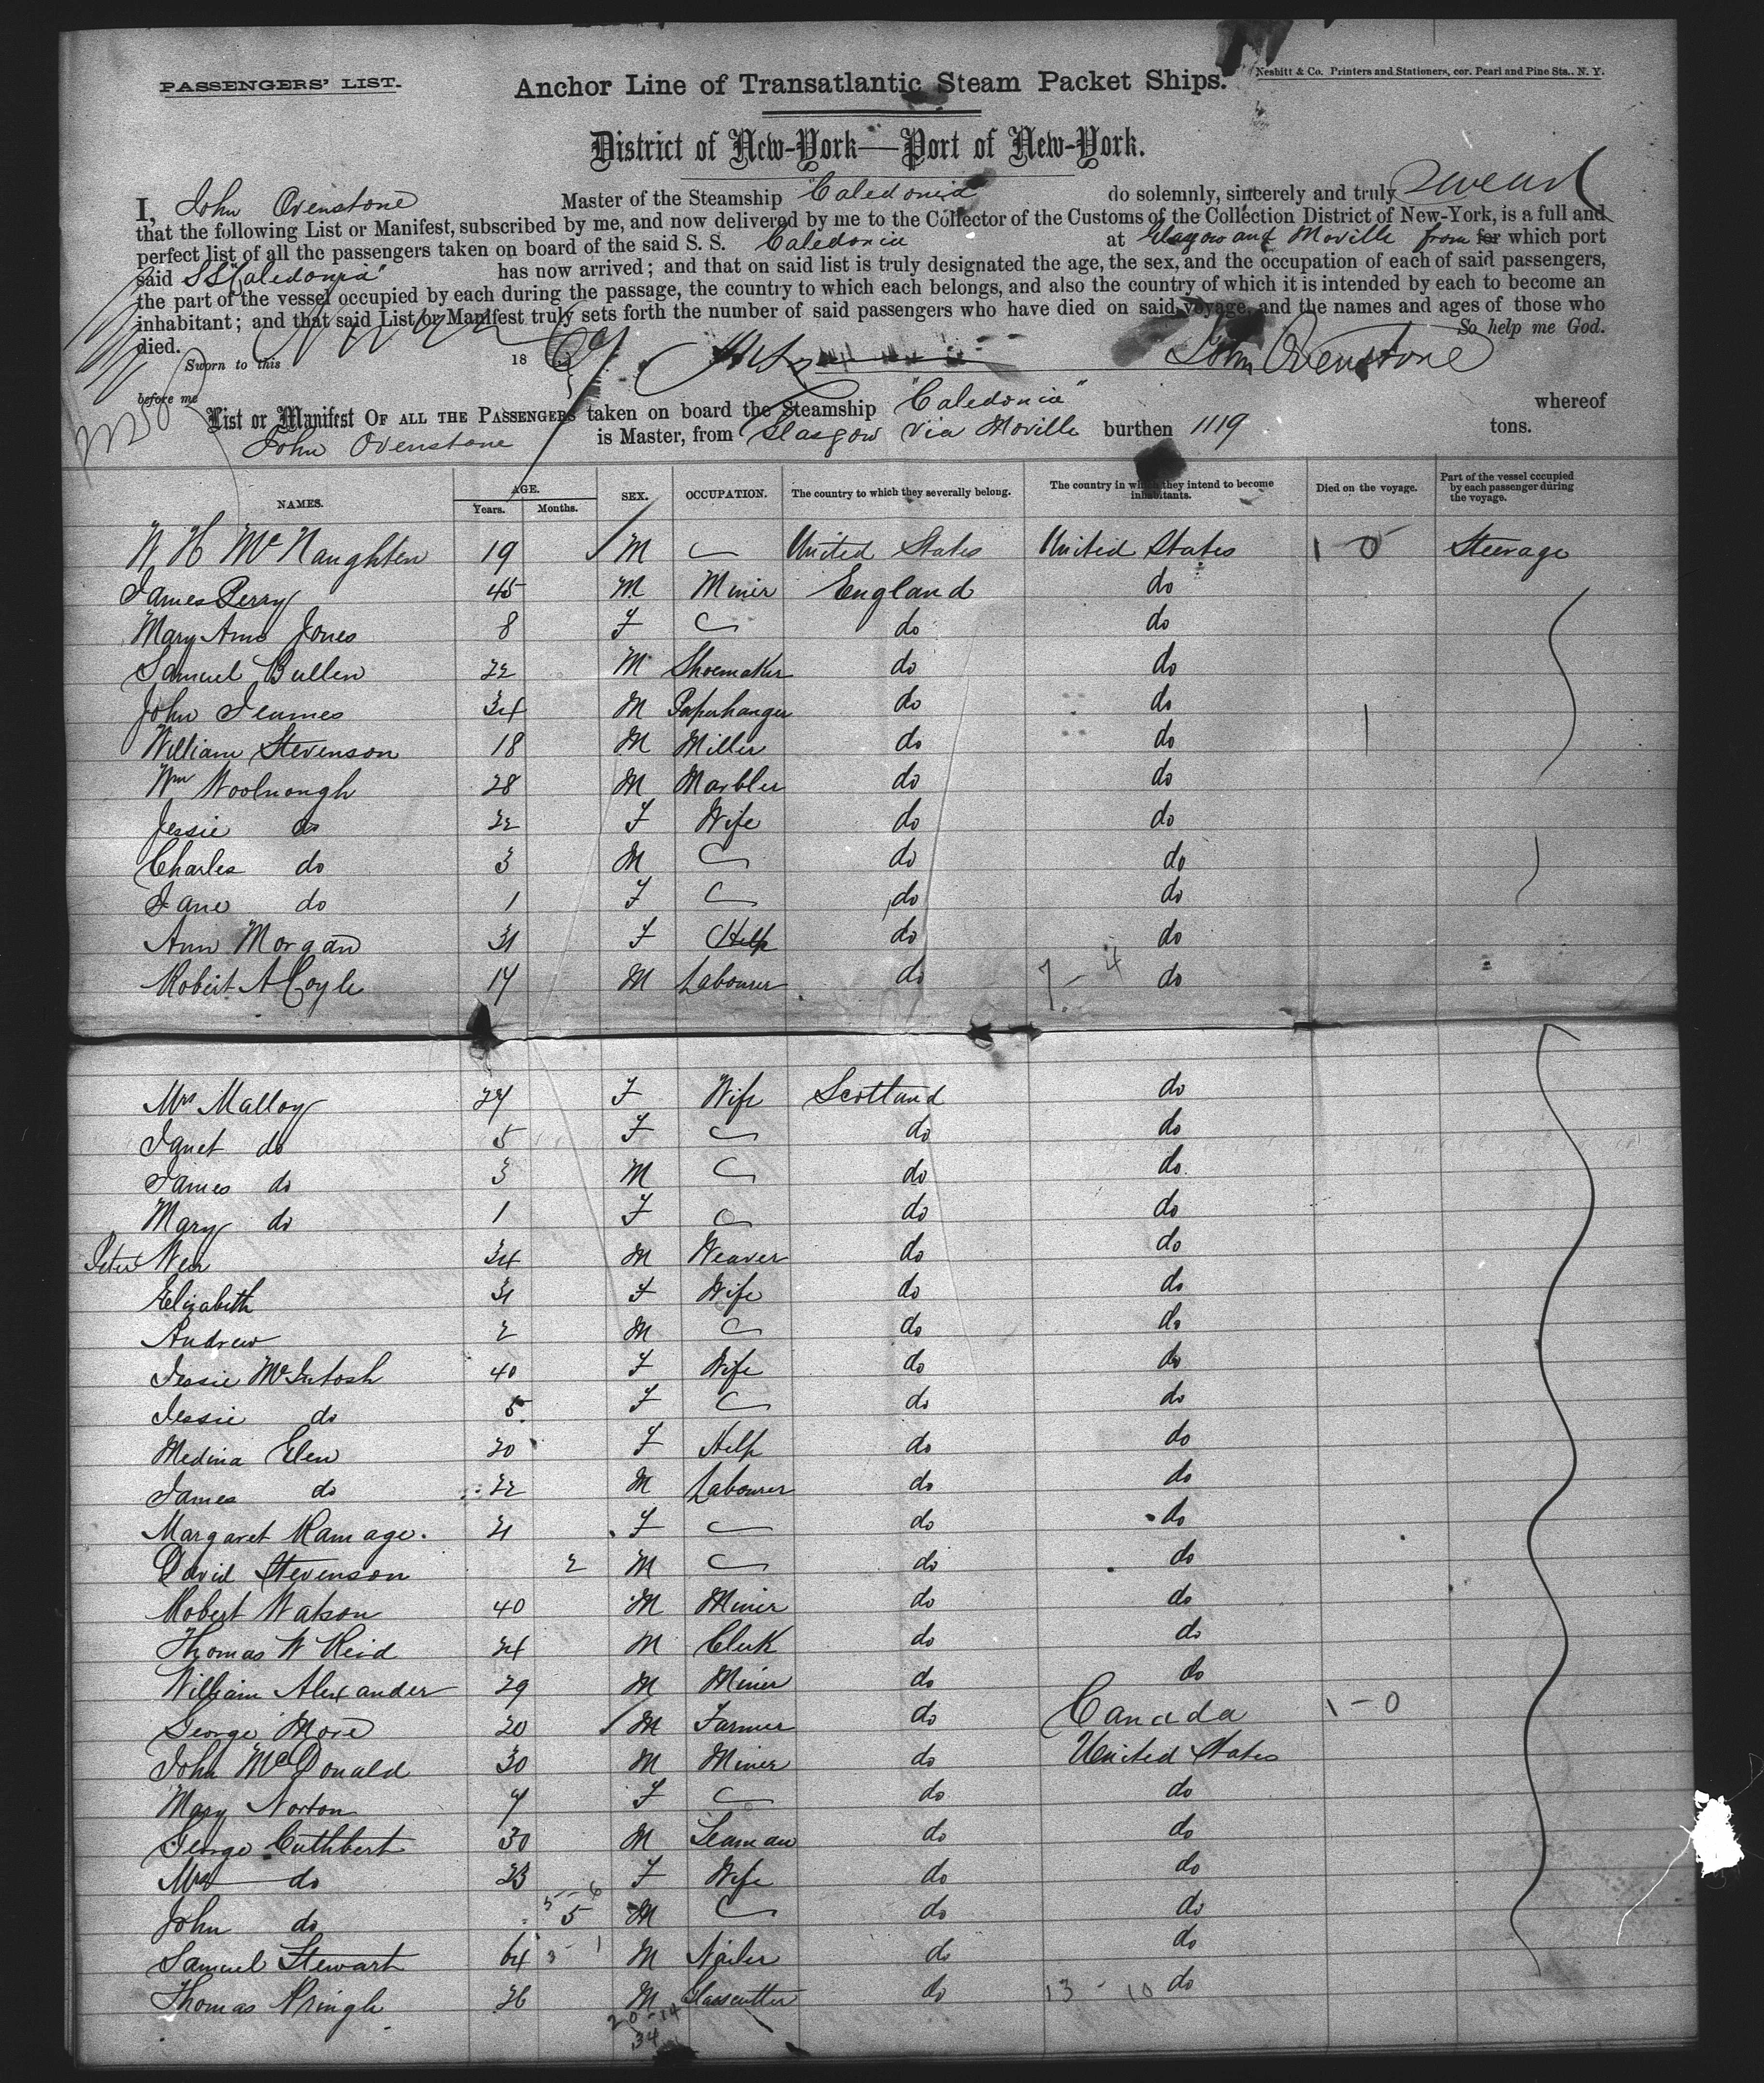 PASSENGERS' LIST.
Anchor Line of Transatlantic Steam Packet Ships.
Nesbitt & Co. Printers and Stationers, cor. Pearl and Pine Sts., N. Y.
District of New-York—Port of New-York.
I, John Ovenstone Master of the Steamship "Caledonia" do solemnly, sincerely and truly swear
that the following List or Manifest, subscribed by me, and now delivered by me to the Collector of the Customs of the Collection District of New-York, is a full and
perfect list of all the passengers taken on board of the said S. S. Caledonia at Glasgow and Moville from for which port
said SS "Caledonia" has now arrived; and that on said list is truly designated the age, the sex, and the occupation of each of said passengers,
the part of the vessel occupied by each during the passage, the country to which each belongs, and also the country of which it is intended by each to become an
inhabitant; and that said List or Manifest truly sets forth the number of said passengers who have died on said voyage, and the names and ages of those who
died. So help me God.
Sworn to this 18 John Ovenstone
before me
List or Manifest OF ALL THE PASSENGERS taken on board the Steamship "Caledonia" whereof
John Ovenstone is Master, from Glasgow via Moville burthen 1119 tons.
NAMES. AGE. Years. Months. SEX. OCCUPATION. The country to which they severally belong. The country in which they intend to become inhabitants. Died on the voyage. Part of the vessel occupied by each passenger during the voyage.
W H McNaughten 19 M United States United States 1 0 Steerage
James Perry 45 M Miner England do
Mary Ann Jones 8 F do do
Samuel Bullen 22 M Shoemaker do do
John 34 M Paperhanger do do
William Stevenson 18 M Miller do do
Wm Woolnough 28 M Marbler do do
Jessie do 22 F Wife do do
Charles do 3 M do do
Jane do 1 F do do
Ann Morgan 31 F Help do do
Robert A Coyle 17 M Labourer do 7 - 4 do
Mrs Malloy 27 F Wife Scotland do
Janet do 5 F do do
James do 3 M do do
Mary do 1 F do do
Peter Weir 34 M Weaver do do
Elizabeth 31 F Wife do do
Andrew 2 M do do
Jessie McIntosh 40 F Wife do do
Jessie do 5 F do do
Medina Elen 20 F Help do do
James do 22 M Labourer do do
Margaret Ramage. 21 F do do
David Stevenson 2 M do do
Robert Watson 40 M Miner do do
Thomas W Reid 24 M Clerk do do
William Alexander 29 M Miner do do
George More 20 M Farmer do Canada 1 - 0
John McDonald 30 M Miner do United States
Mary Norton 7 F do do
George Cuthbert 30 M Seaman do do
Mrs do 23 F Wife do do
John do 5 M do do
Samuel Stewart 64 3 - 1 M Nailer do do
Thomas Pringle 26 M Glasscutter do 13 - 10 do
20 - 14
34